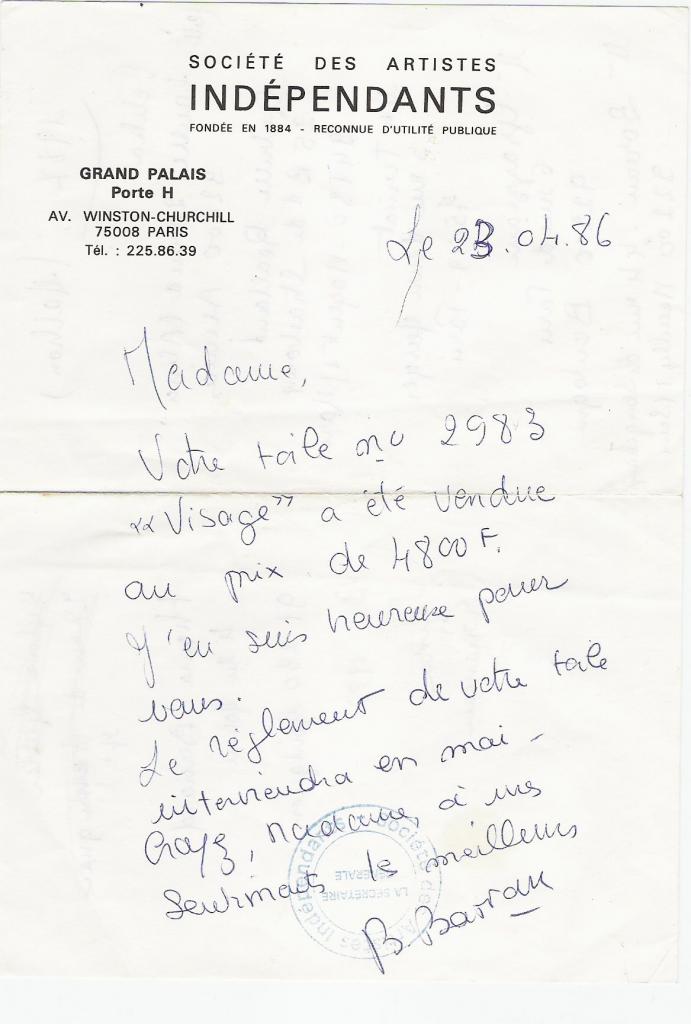 SOCIÉTÉ DES ARTISTES
INDÉPENDANTS
FONDÉE EN 1884 - RECONNUE D'UTILITÉ PUBLIQUE
GRAND PALAIS
Porte H
AV. WINSTON-CHURCHILL
75008 PARIS
Tél. : 225.86.39
Le 23.04.86
Madame,
Votre toile no 2983
«Visage» a été vendue
au prix de 4800 F.
J'en suis heureuse pour
vous.
Le règlement de votre toile
interviendra en mai -
Croyez, Madame, à mes
sentiments les meilleurs
B. Barran
Société des Artistes Indépendants
LA SECRÉTAIRE
GÉNÉRALE